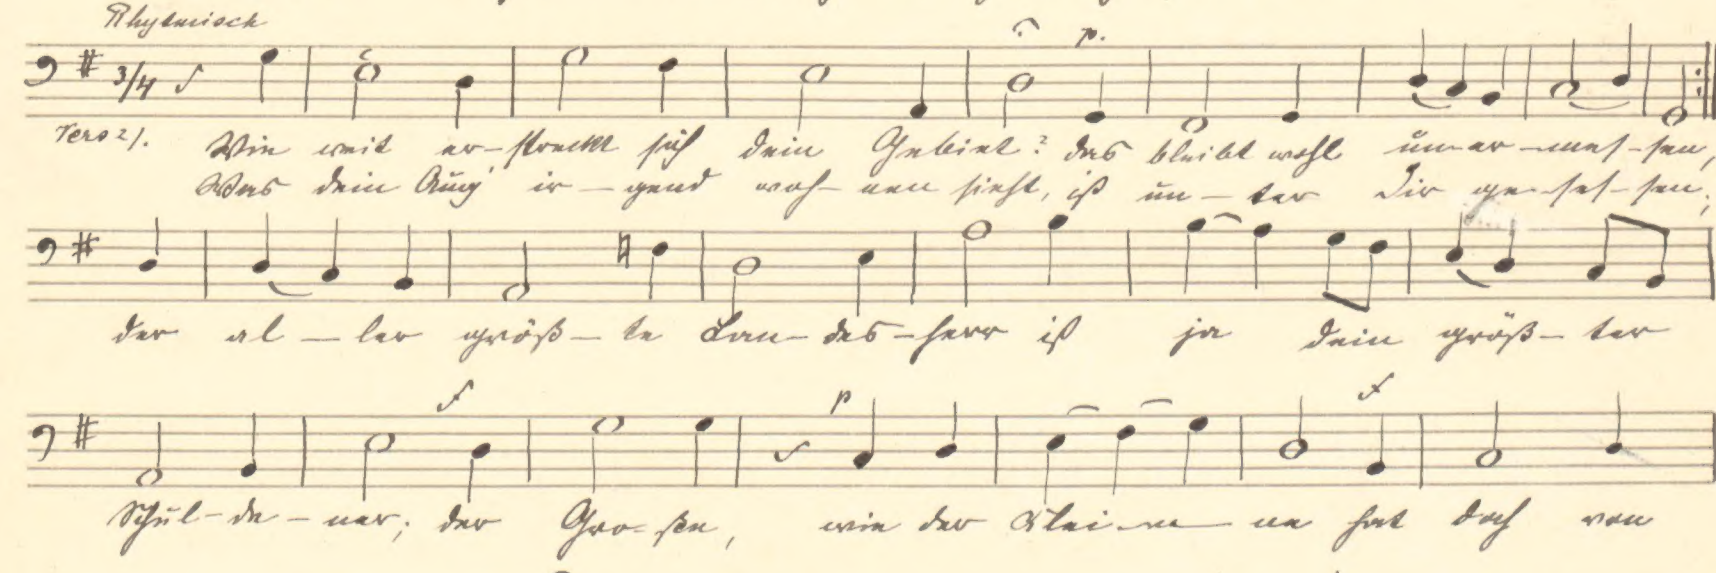 Rhytmisch
3/4
p.
Vers 2/. Wie weit er-streckt sich dein Gebiet? das bleibt wohl uner-mes-sen,
Was dein Aug' ir-gend woh-nen sieht, ist un-ter Dir ge-ses-sen;
der al-ler größ-te Lan-des-herr ist ja dein größ-ter
f p f
Schul-de-ner; der Gro-ße, wie der Klei-ne hat doch von